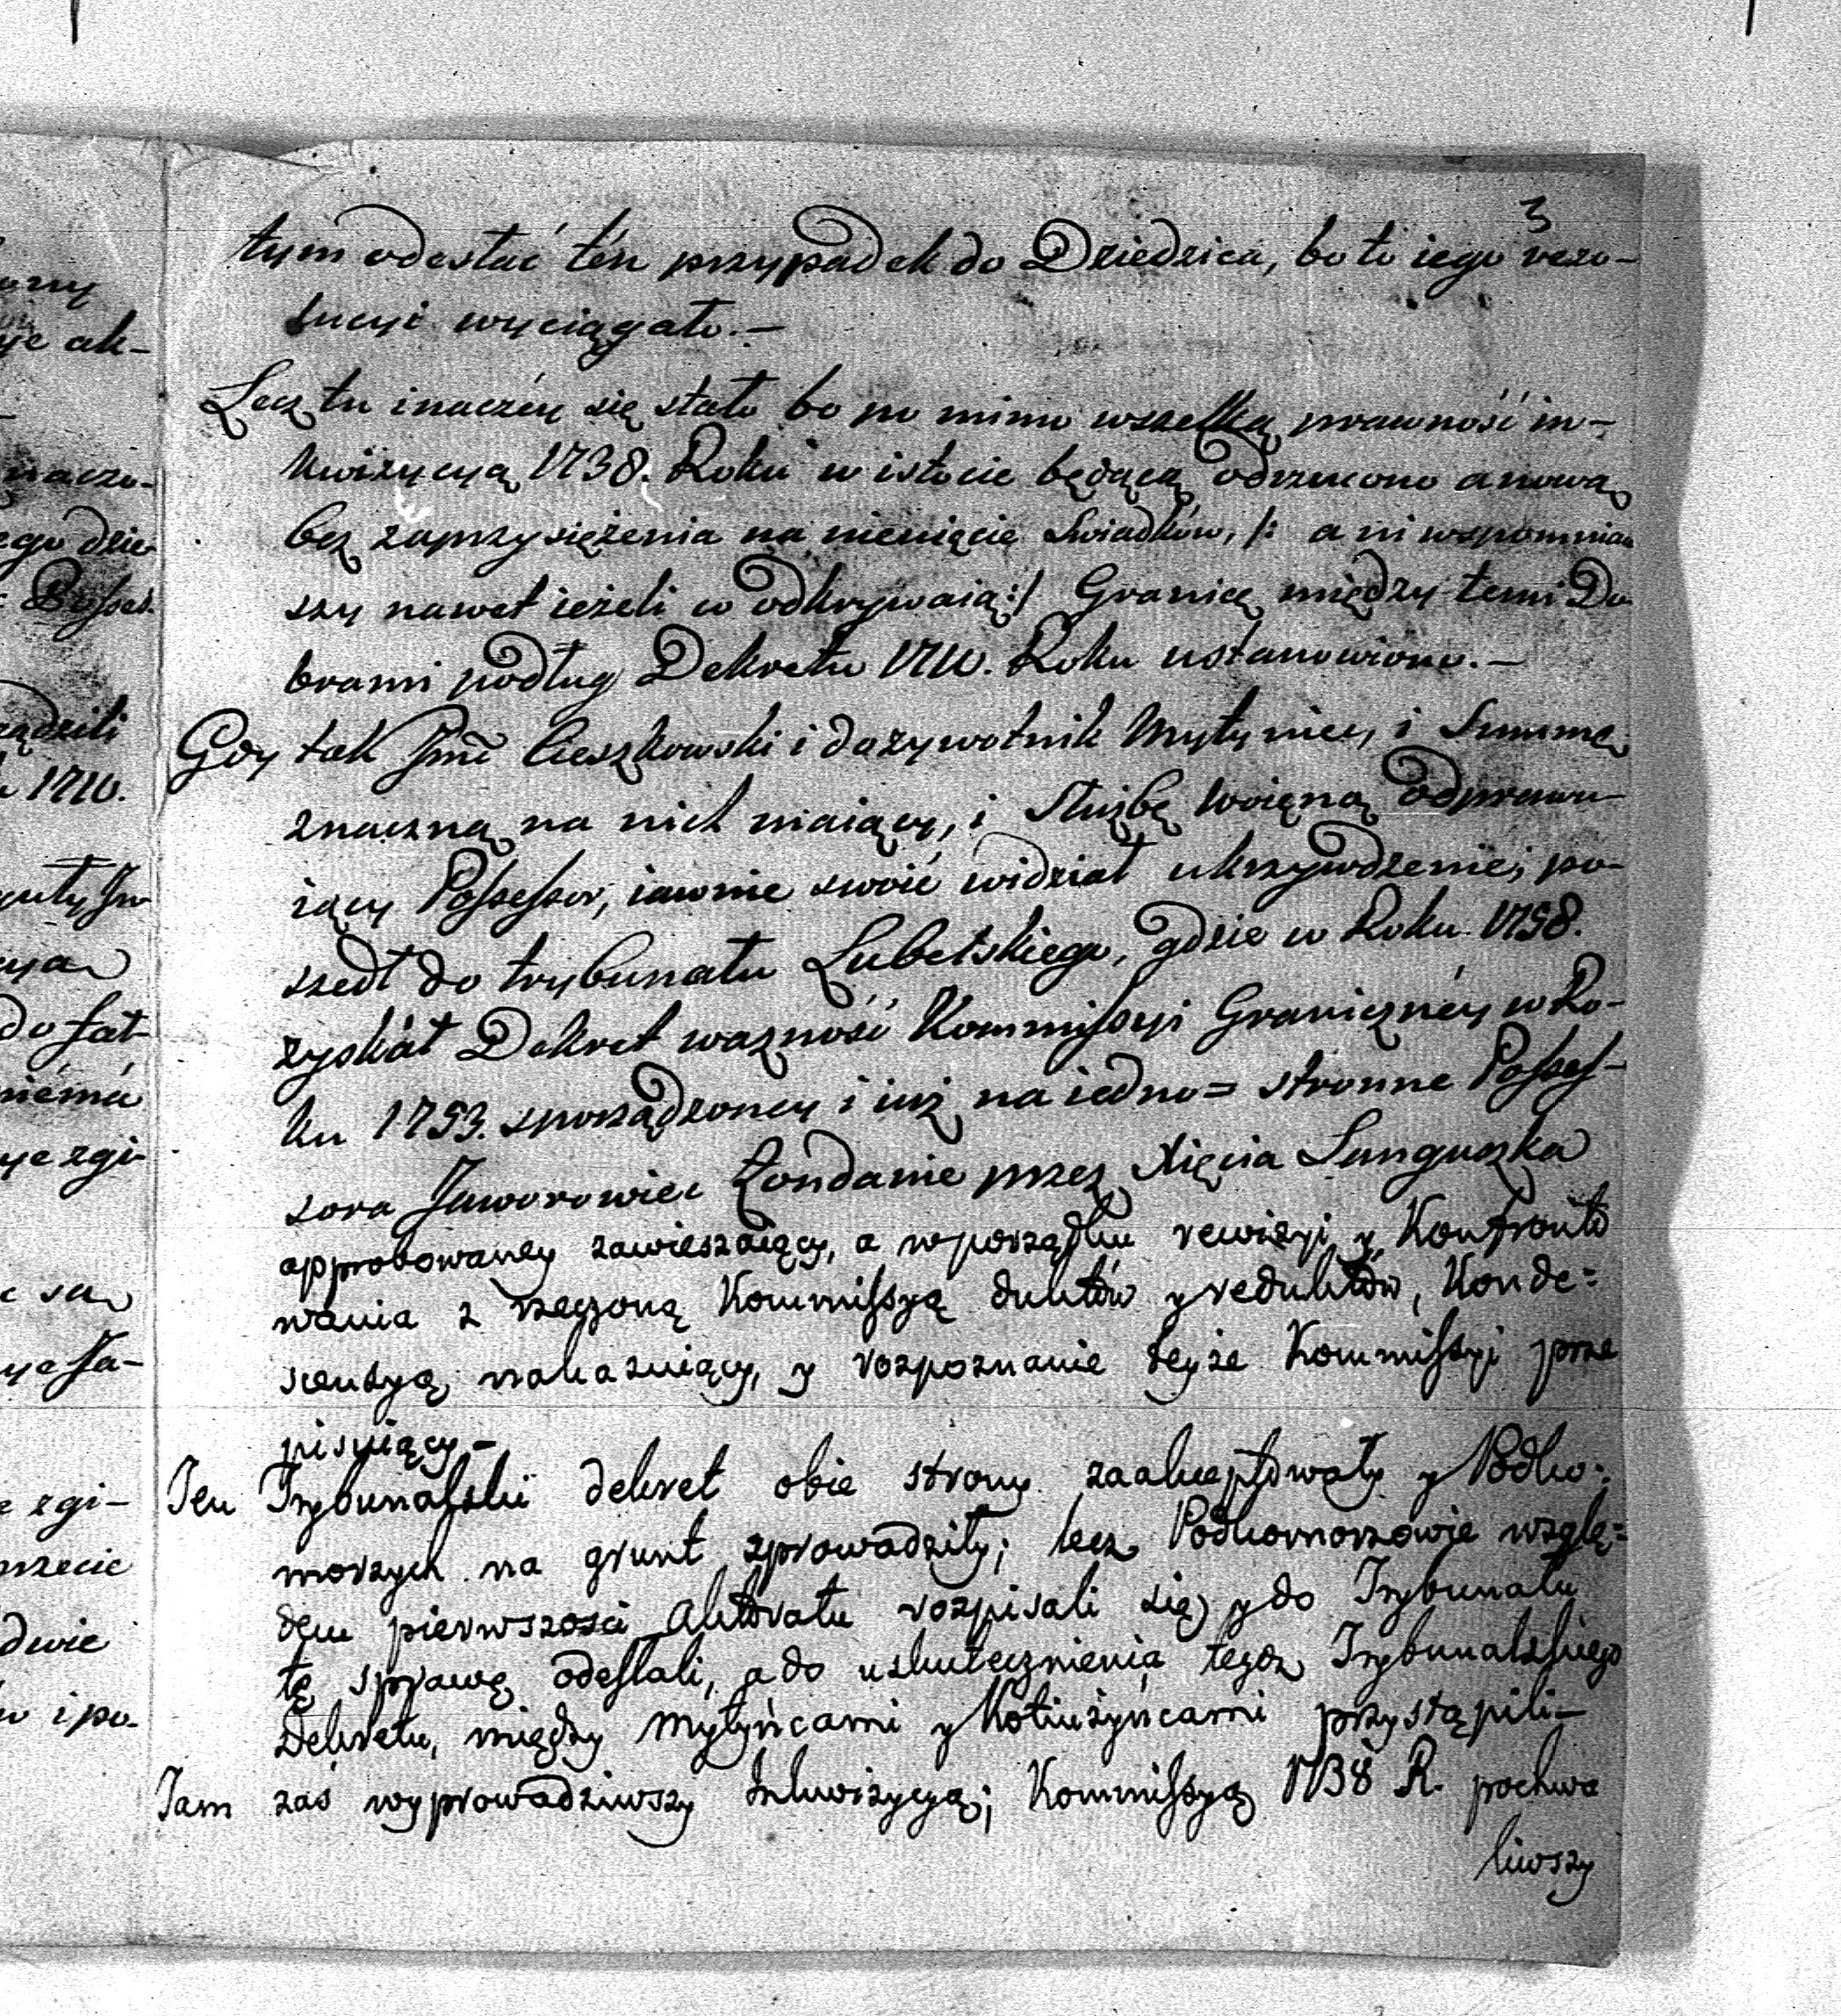 3
tym odesłać tén przypadek do Dziedzica, bo to iego rezo-
lucyi wyciągało.-
Lecz tu inaczéy się stało bo po mimo wszelką prawność in-
kwizycyą 1738. Roku w istocie będącą odrzucono a nową
bez zaprzysiężenia na niewięcie Swiadków, /: ani wspomniaw
szy nawet ieżeli co odkrywaią :/ Granicę między temi Do
brami podług Dekretu 1710. Roku ustanowiono.-
Gdy tak Jmć Cieszkowski i dożywotnik Mytyniec, i Summę
znaczną na nich maiący, i Służbę woięną odprawu-
iący Possessor, iawnie swoié widział ukrzywdzenie, po-
szedł do trybunału Lubelskiego, gdzie w Roku 1758.
zyskáł Dekret ważność Kommissyi Granicznéy w Ro-
ku 1753. sporządzoney i iuż na iedno= stronne Posses-
sora Jaworowiec Żondanie przez Xięcia Sanguszka
approbowaney zawieszaiący, a w porządku rewizyi y Konfronto
wania z rzeczoną Kommissyą duktów y reduktów, Konde=
scensyą nakazuiący, y rozpoznanie teyże Kommissyi prze
pisuiący.-
Ten Trybunalski dekret obie strony zaakceptowały y Podko=
morzych na grunt zprowadziły; lecz Podkomorzowie wzglę=
dem pierwszości Aktoratu rozpisali się y do Trybunału
tę sprawę odesłali, a do uskutecznienia tegoż Trybunalskiego
Dekretu, między Mytyńcami y Kotiużyńcami przystąpili-
Tam zaś wyprowadziwszy Inkwizycyą; Kommissyą 1738 R. pochwa
liwszy